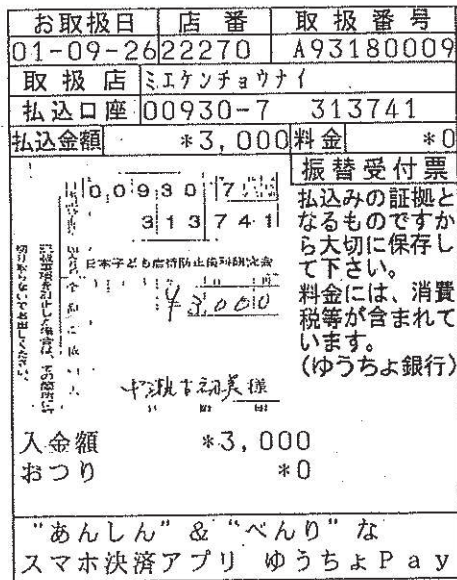 お取扱日 店番 取扱番号
01-09-26 22270 A93180009
取扱店 ミエケンチョウナイ
払込口座 00930-7 313741
払込金額 *3,000 料金 *0
振替受付票
払込みの証拠と
なるものですか
ら大切に保存し
て下さい。
料金には、消費
税等が含まれて
います。
(ゆうちょ銀行)
00930 7
313741
日本子ども虐待防止歯科研究会
¥3,000
様
切り取らないでお出しください。
入金額 *3,000
おつり *0
"あんしん"&"べんり"な
スマホ決済アプリ ゆうちょPay